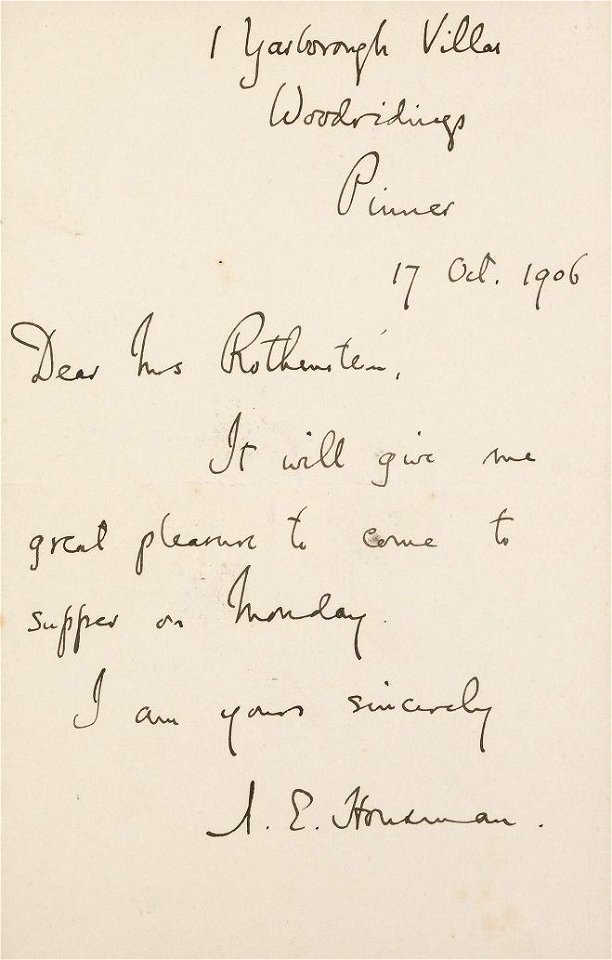 1 Yarborough Villas
Woodridings
Pinner
17 Oct. 1906
Dear Mrs Rothenstein,
It will give me
great pleasure to come to
supper on Monday.
I am yours sincerely
A. E. Housman.